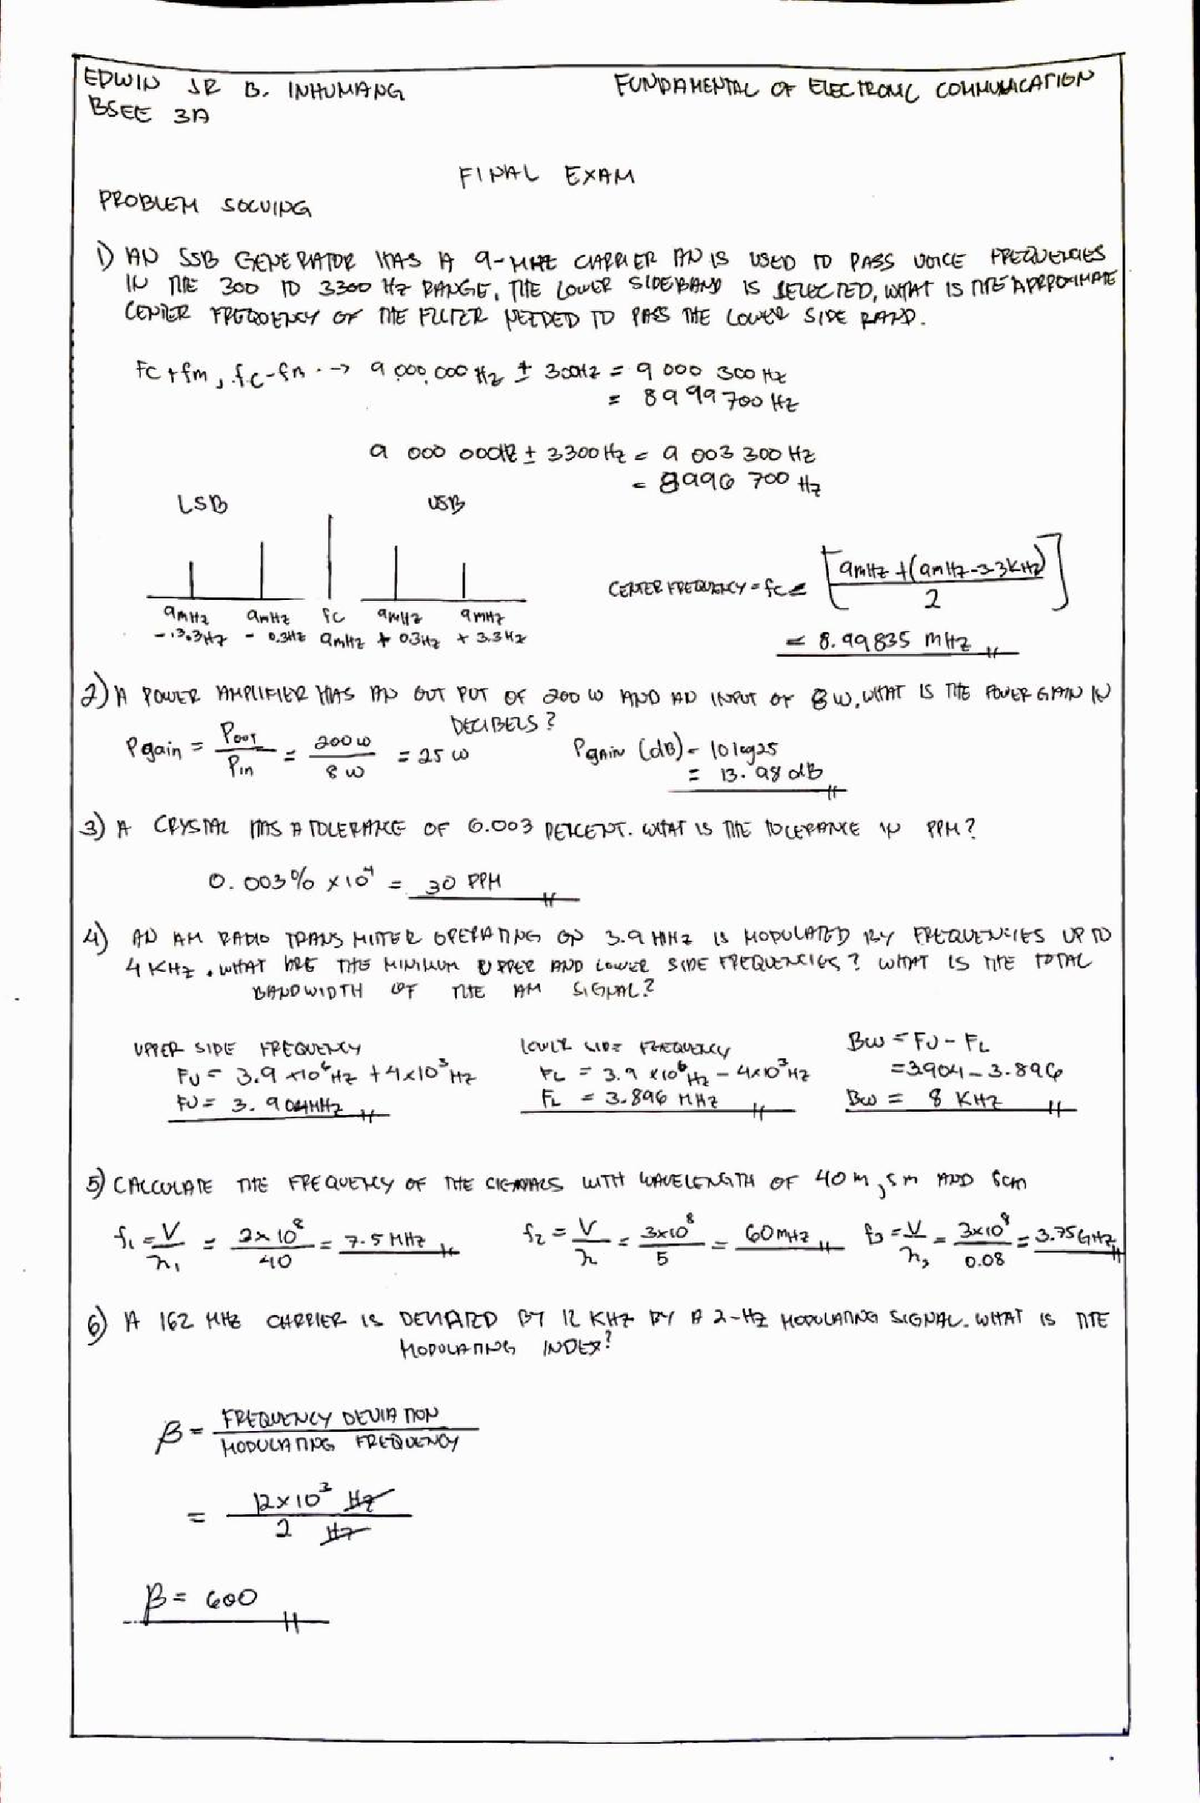 EDWIN JR B. INHUMANG
FUNDAMENTAL OF ELECTRONIC COMMUNICATION
BSEE 3A
FINAL EXAM
PROBLEM SOLVING
1) AN SSB GENERATOR HAS A 9-MHZ CARRIER AN IS USED TO PASS VOICE FREQUENCIES
IN THE 300 TO 3300 Hz RANGE, THE LOWER SIDEBAND IS SELECTED, WHAT IS THE APPROXIMATE
CENTER FREQUENCY OF THE FILTER NEEDED TO PASS THE LOWER SIDE BAND.
Fc + fm, fc - fm --> 9 000,000 Hz ± 300Hz = 9 000 300 Hz
= 8999700 Hz
9 000 000Hz ± 3300 Hz = 9 003 300 Hz
= 8996 700 Hz
LSB USB
CENTER FREQUENCY = fc = [9mHz + (9mHz - 3.3KHz) / 2]
9mHz 9mHz fc 9mHz 9mHz
- 3.3Hz - 0.3Hz 9mHz + 0.3Hz + 3.3Hz
= 8.99835 mHz
2) A POWER AMPLIFIER HAS AN OUT PUT OF 200 W AND AN INPUT OF 8 W, WHAT IS THE POWER GAIN IN
DECIBELS?
Pgain = Pout / Pin = 200 W / 8 W = 25 W
PGAIN (dB) = 10 log25
= 13.98 dB
3) A CRYSTAL HAS A TOLERANCE OF 0.003 PERCENT. WHAT IS THE TOLERANCE IN PPM?
0.003% × 10⁴ = 30 PPM
4) AN AM RADIO TRANS MITTER OPERATING ON 3.9 MHz IS MODULATED BY FREQUENCIES UP TO
4 KHZ. WHAT ARE THE MINIMUM UPPER AND LOWER SIDE FREQUENCIES? WHAT IS THE TOTAL
BANDWIDTH OF THE AM SIGNAL?
UPPER SIDE FREQUENCY
FU = 3.9 ×10⁶Hz + 4×10³ Hz
FU = 3.904MHz
LOWER SIDE FREQUENCY
FL = 3.9 ×10⁶Hz - 4×10³ Hz
FL = 3.896 MHz
BW = FU - FL
= 3.904 - 3.896
BW = 8 KHZ
5) CALCULATE THE FREQUENCY OF THE SIGNALS WITH WAVELENGTH OF 40 m, 5m AND 8cm
f₁ = V / λ₁ = 3×10⁸ / 40 = 7.5 MHz
f₂ = V / λ = 3×10⁸ / 5 = 60mHz
f₃ = V / λ₃ = 3×10⁸ / 0.08 = 3.75GHz
6) A 162 MHz CARRIER IS DEVIATED BY 12 KHZ BY A 2-Hz MODULATING SIGNAL. WHAT IS THE
MODULATING INDEX?
β = FREQUENCY DEVIATION / MODULATING FREQUENCY
= 12×10³ Hz / 2 Hz
β = 600